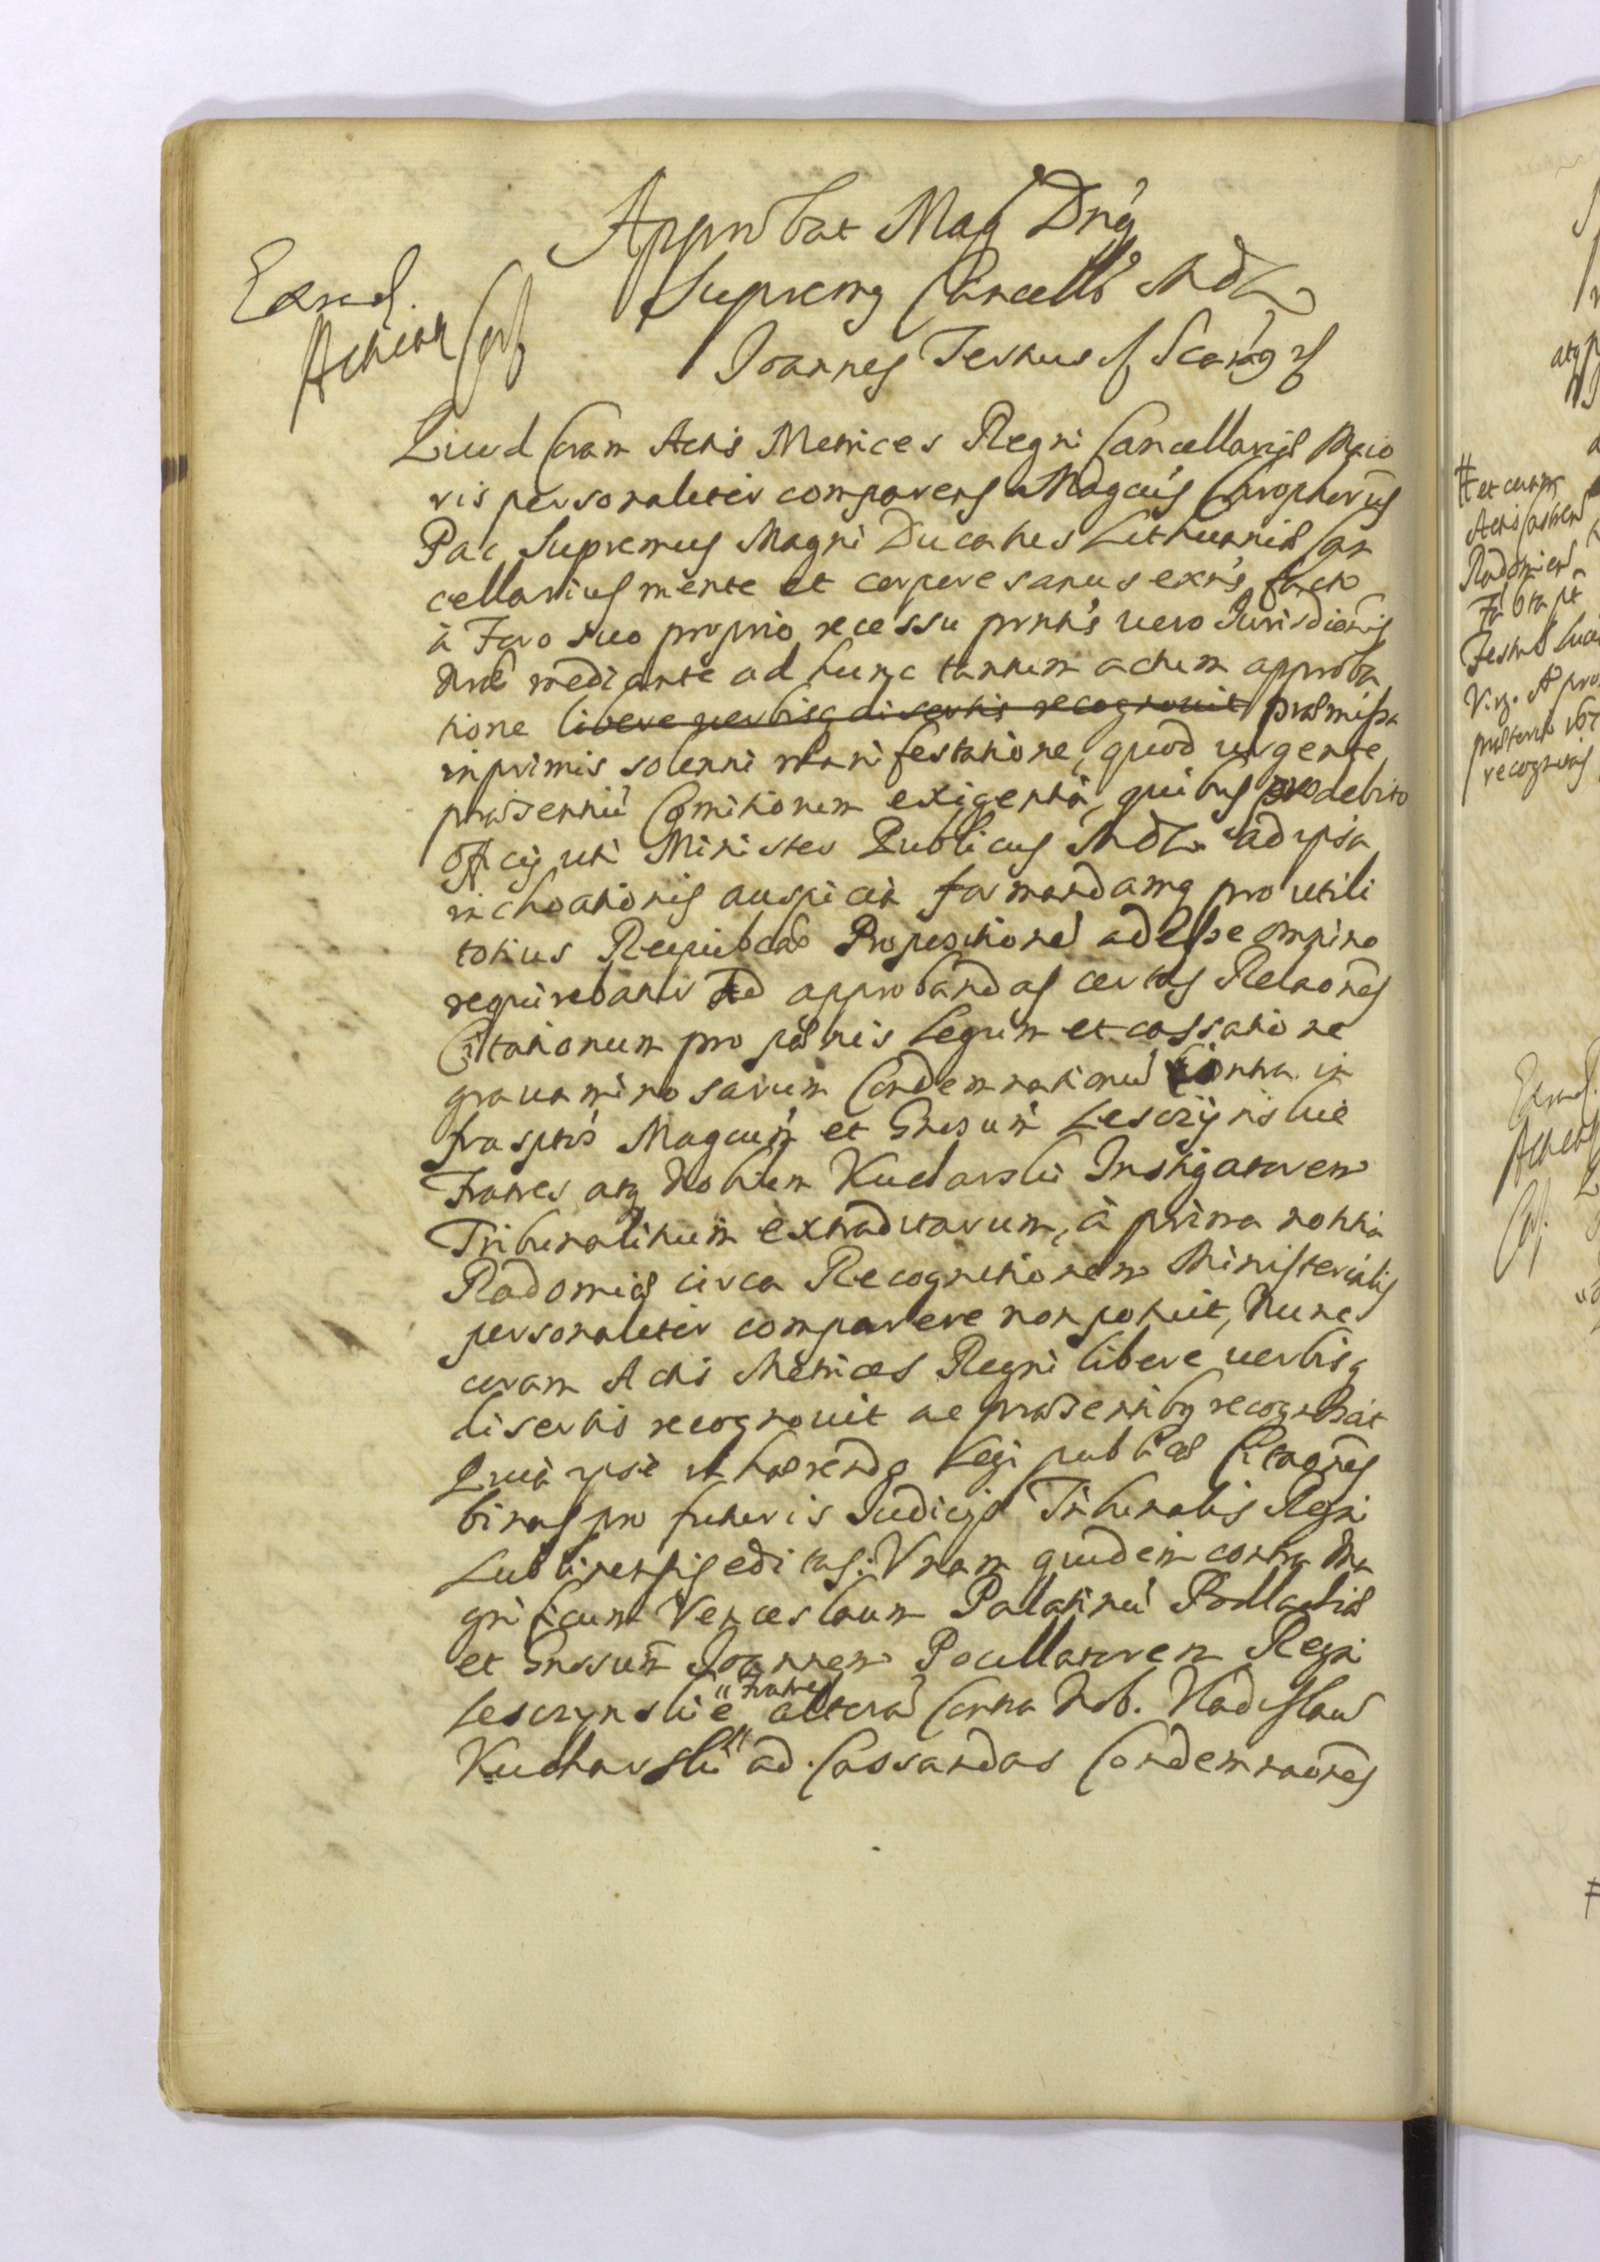 Approbat Mag Dnus
Supremus Cancell MDL
Extrad.
Joannes
Quod Coram Actis Metrices Regni Cancellariæ Maio
ris personaliter comparens Magcus Christophorus
Pac Supremus Magni Ducatus Lithuaniæ Can
cellarius mente et corpore sanus exns, facto
à Foro suo proprio recessu prntis vero Jurisdionis
mediante ad hunc tantum actum approba
tione libere verbisq disertis recognovit præmissa
inprimis solenni manifestatione, quod urgente
præsentiu Comitiorum exigentia, quibus pro debito
officij uti Minister Publicus MDL ad ipsa
inchoationis auspicia formandamq pro utili
totius Reipubcæ Propositione adesse omnino
requirebatur Ad approbandas certas Relaones
Citationum pro pænis Legum et cassatione
gravaminosarum Condemnationu Contra in
frasptos Magcum et Gnosum Lesczynskie
Fratres atq Nobilem Kucharski Instigatorem
Tribunalitium extraditarum, à prima notitia
Radomiæ circa Recognitionem Ministerialis
personaliter comparere non potuit, Nunc
coram Actis Metrices Regni libere verbisq
disertis recognovit ac præsentibq recognoscit
Quia ipse inhærendo Legi publicæ Citaones
binas pro futuris Judicijs Tribunalis Regni
Lublinensis editas: Unam quidem contra Ma
gnificum Venceslaum Pallatinu Podlachiæ
et Gnosum Joannem Pocillatorem Regni
Lesczynskie Fratres altera Contra Nob. Vladislau
Kucharski ad Cassandas Condemnaones
et coram
Actis Castren
Radomien
recognovit
Extrad.